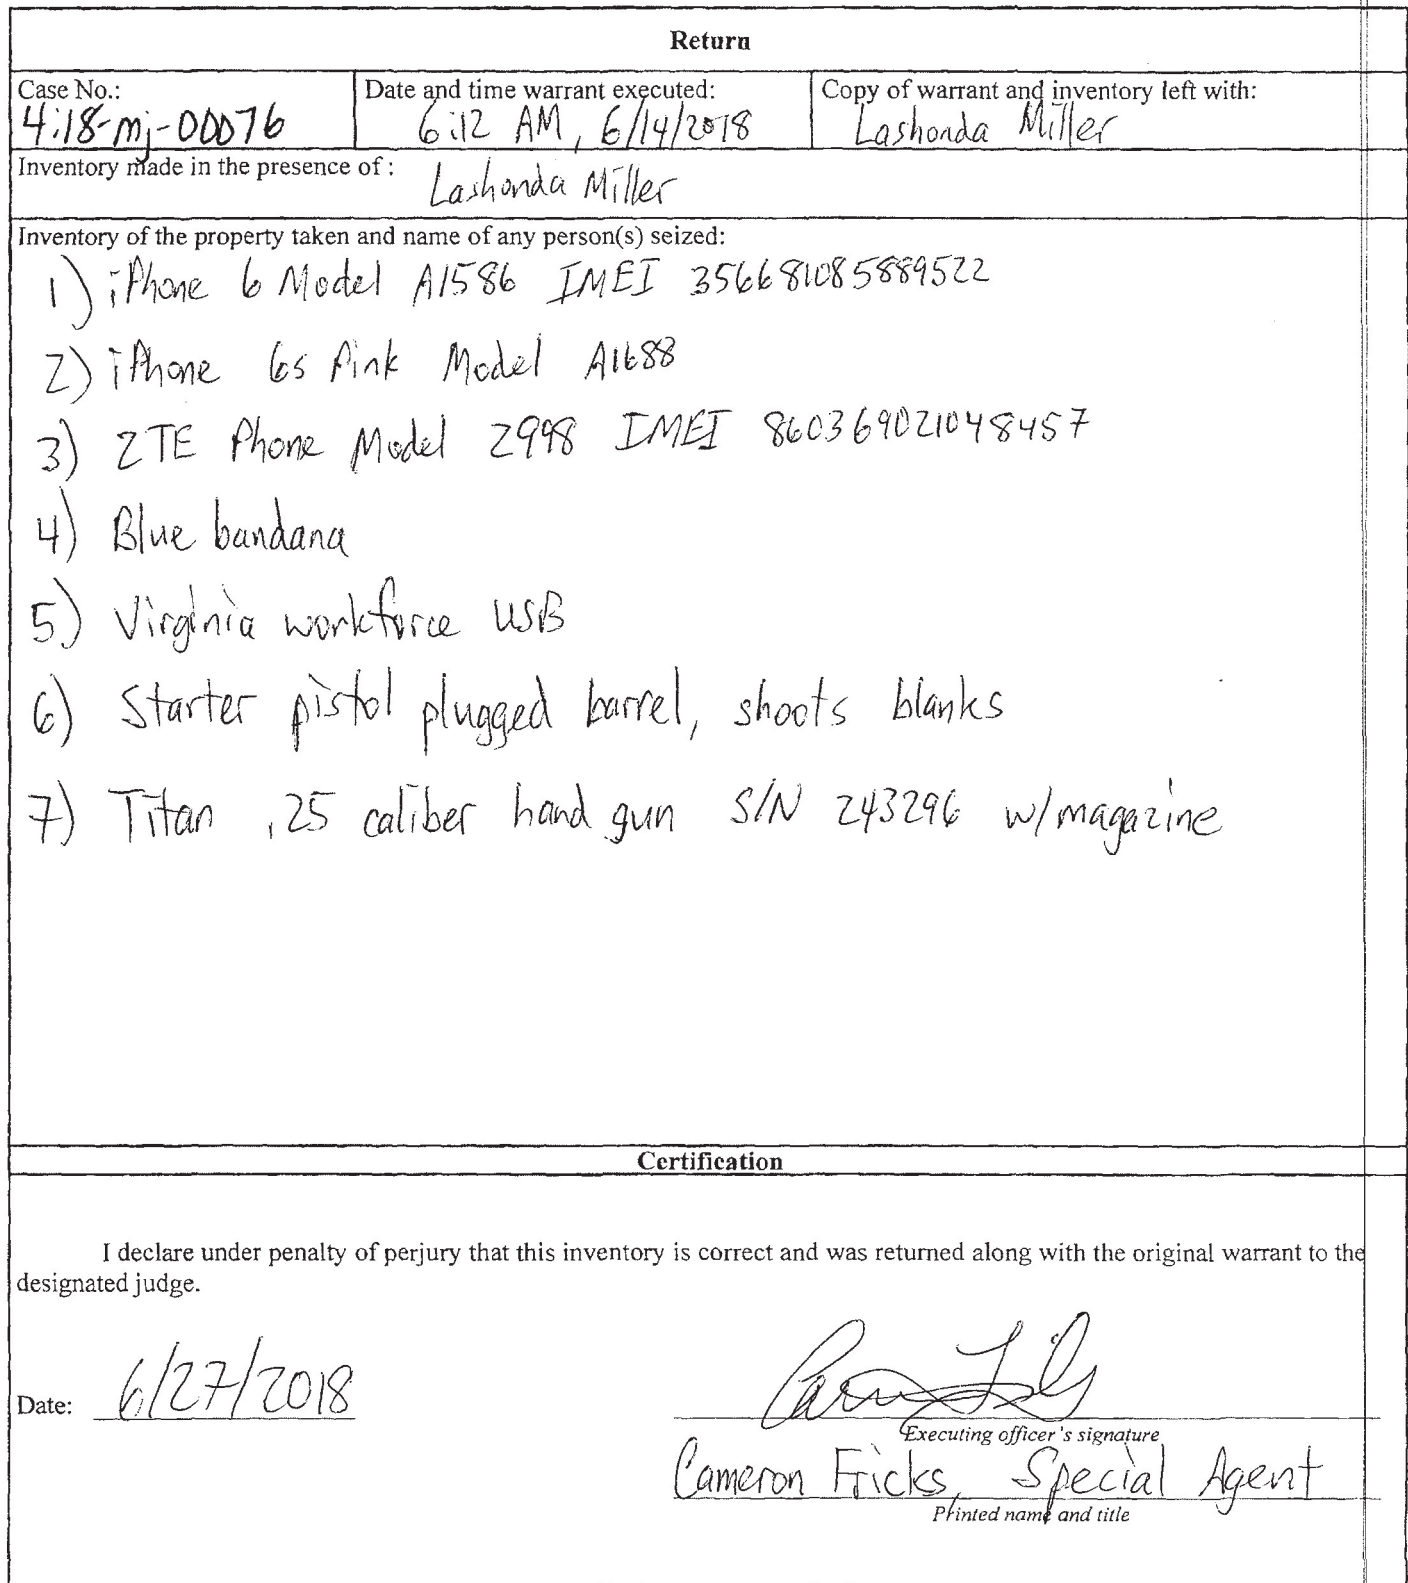 Return
Case No.:
4:18-mj-00076
Date and time warrant executed:
6:12 AM, 6/14/2018
Copy of warrant and inventory left with:
Lashonda Miller
Inventory made in the presence of :
Lashonda Miller
Inventory of the property taken and name of any person(s) seized:
1) iPhone 6 Model A1586 IMEI 356681085889522
2) iPhone 6s Pink Model A1688
3) ZTE Phone Model Z998 IMEI 860369021048457
4) Blue bandana
5) Virginia workforce USB
6) Starter pistol plugged barrel, shoots blanks
7) Titan .25 caliber hand gun S/N 243296 w/magazine
Certification
I declare under penalty of perjury that this inventory is correct and was returned along with the original warrant to the
designated judge.
Date: 6/27/2018
Executing officer's signature
Cameron Fricks, Special Agent
Printed name and title